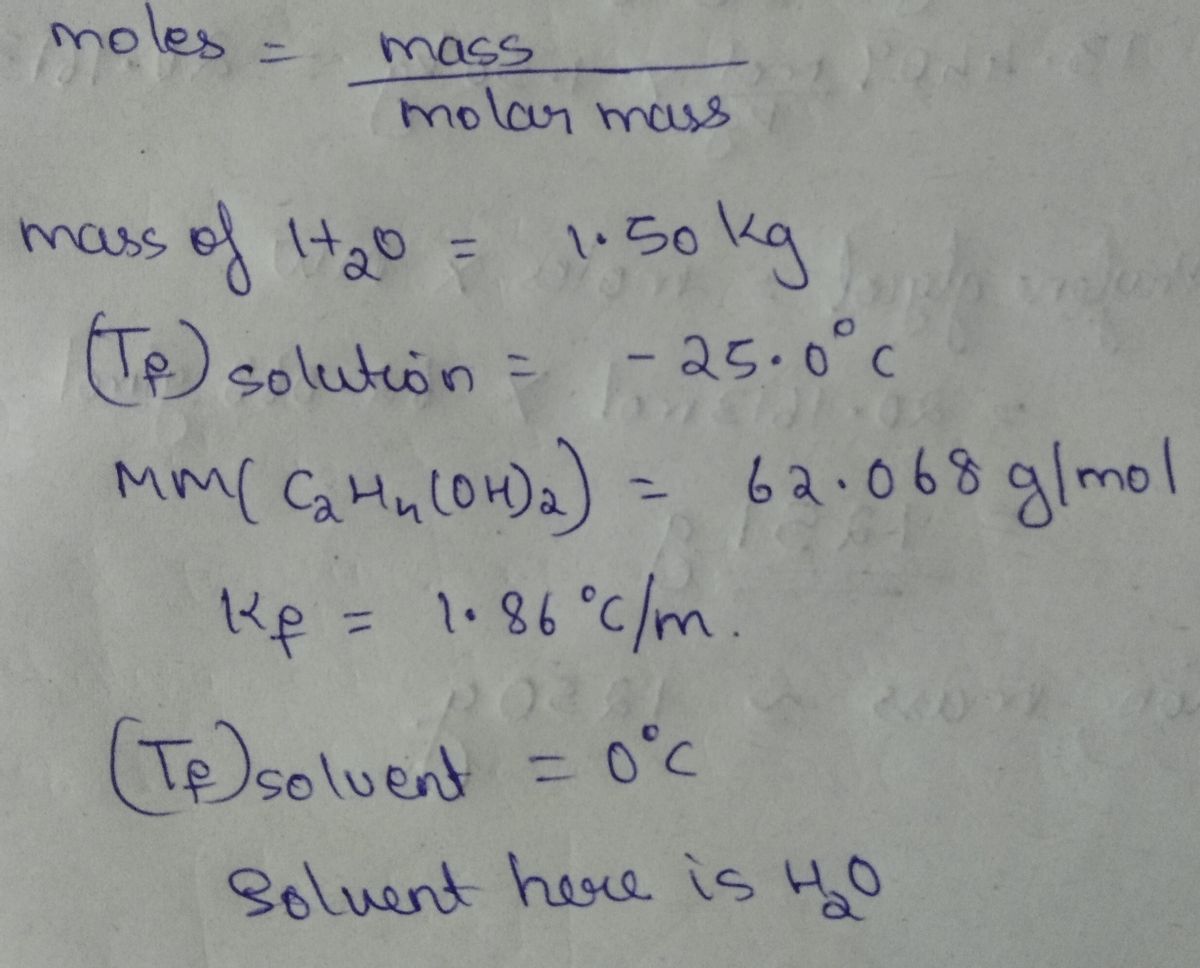 moles = mass
molar mass
mass of H₂O = 1.50 kg
(Tf) solution = - 25.0°C
MM( C₂H₄(OH)₂) = 62.068 g/mol
Kf = 1.86 °C/m.
(Tf) solvent = 0°C
Solvent here is H₂O